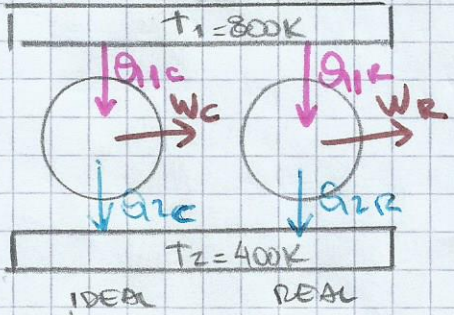 T1=800K
Q1C Q1R
WC WR
Q2C Q2R
T2=400K
IDEAL REAL